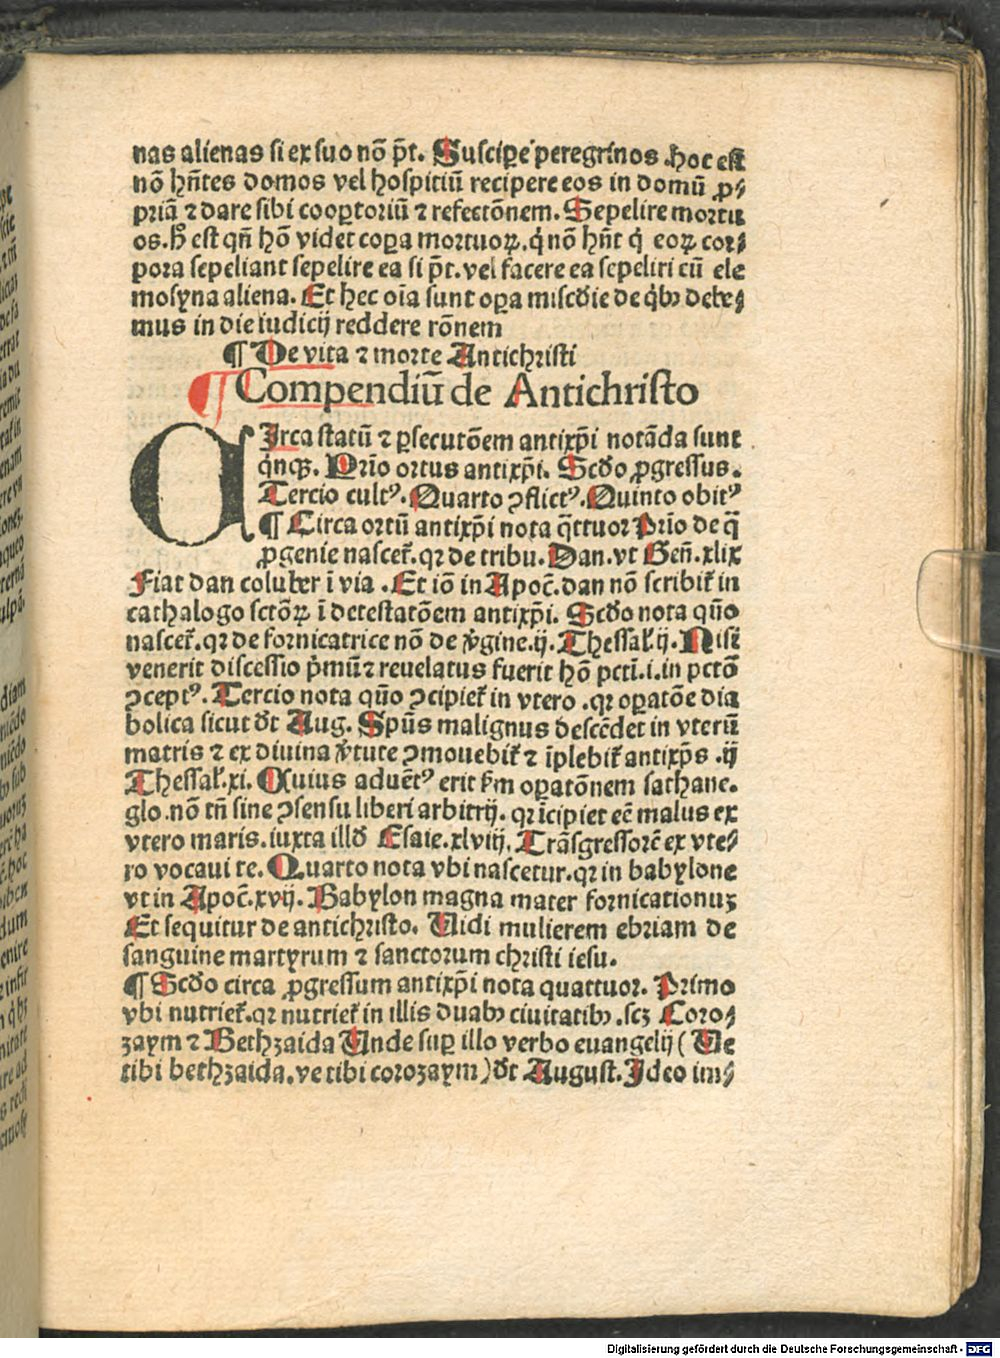 nas alienas si ex suo nõ p̃t. Suscipe peregrinos .hoc est
nõ hñtes domos vel hospitiũ recipere eos in domũ ꝓ⸗
priã ⁊ dare sibi cooꝑtoriũ ⁊ refectõnem. Sepelire mortu
os. H̃ est qñ hõ videt corꝑa mortuoꝝ. q̇ nõ hñt q̇ eoꝝ cor⸗
pora sepeliant sepelire ea si p̃t. vel facere ea sepeliri cũ ele
mosyna aliena. Et hec oĩa sunt oꝑa misc̃die de qb̾ debe⸗
mus in die iudicij reddere rõnem
¶ De vita ⁊ morte Antichristi
¶ Compendiũ de Antichristo
CIrca statũ ⁊ ꝑsecutõem antixp̃i notãda sunt
qnqꝫ. Prĩo ortus antixp̃i. Scd̾o ꝓgressus.
Tercio cultꝰ. Quarto ꝯflictꝰ. Quinto obitꝰ
¶ Circa ortũ antixp̃i nota q̃ttuor Prĩo de q̃
ꝓgenie nascet̃. qꝛ de tribu. Dan. vt Geñ. xlix
Fiat dan coluber ĩ via . Et iõ in Apoc̃. dan nõ scribit̃ in
cathalogo sctõꝝ ĩ detestatõem antixp̃i. Scd̾o nota quõ
nascet̃. qꝛ de fornicatrice nõ de v̾gine. ij. Thessal̃. ij. Nisi
venerit discessio p̃mũ ⁊ reuelatus fuerit hõ pctĩ. i. in pctõ
ꝯceptꝰ. Tercio nota quõ ꝯcipiet̃ in vtero . qꝛ oꝑatõe dia
bolica sicut d̾t Aug. Spũs malignus descẽdet in vterũ
matris ⁊ ex diuina v̾tute ꝯmouebit̃ ⁊ ĩplebit̃ antixp̃s . ij
Thessal̃. xi. Cuius aduẽtꝰ erit s̾m oꝑatõnem sathane.
glo. nõ tñ sine ꝯsensu liberi arbitrij. qꝛ ĩcipiet eẽ malus ex
vtero maris. iuxta illd̾ Esaie. xlviij. Trãsgressorẽ ex vte⸗
ro vocaui te. Quarto nota vbi nascetur. qꝛ in babylone
vt in Apoc̃. xvij. Babylon magna mater fornicationuꝫ
Et sequitur de antichristo. Uidi mulierem ebriam de
sanguine martyrum ⁊ sanctorum christi iesu.
¶ Scd̾o circa ꝓgressum antixp̃i nota quattuor. Primo
vbi nutriet̃. qꝛ nutriet̃ in illis duab̾ ciuitatib̾. scꝫ Coro⸗
zaym ⁊ Bethzaida Unde suꝑ illo verbo euangelij ( Ue
tibi bethzaida. ve tibi corozaym ) d̾t August. Ideo im⸗
Digitalisierung gefördert durch die Deutsche Forschungsgemeinschaft - DFG